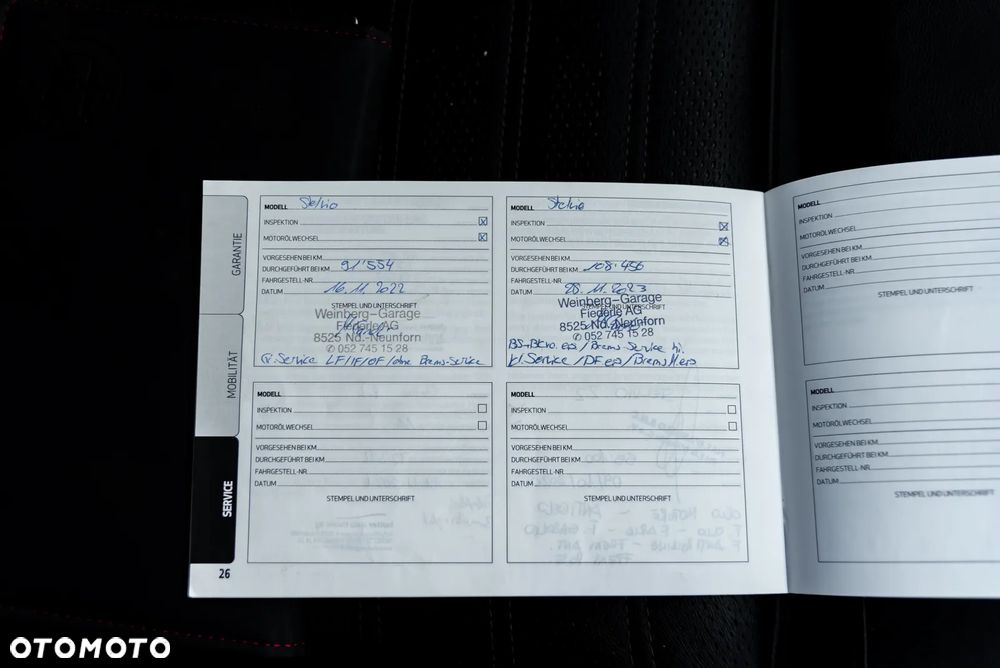 GARANTIE
MOBILITÄT
SERVICE
MODELL Stelvio
INSPEKTION
MOTORÖLWECHSEL
VORGESEHEN BEI KM
DURCHGEFÜHRT BEI KM 91'554
FAHRGESTELL-NR.
DATUM 16.11.2022
STEMPEL UND UNTERSCHRIFT
Weinberg-Garage
Fiederle AG
8525 Nd.-Neunforn
✆ 052 745 15 28
Gr. Service LF/IF/OF/ohne Brems-Service
MODELL Stelvio
INSPEKTION
MOTORÖLWECHSEL
VORGESEHEN BEI KM
DURCHGEFÜHRT BEI KM 108.456
FAHRGESTELL-NR.
DATUM 28.11.2023
STEMPEL UND UNTERSCHRIFT
Weinberg-Garage
Fiederle AG
8525 Nd.-Neunforn
✆ 052 745 15 28
Brems-Service hi.
kl. Service
MODELL
INSPEKTION
MOTORÖLWECHSEL
VORGESEHEN BEI KM
DURCHGEFÜHRT BEI KM
FAHRGESTELL-NR.
DATUM
STEMPEL UND UNTERSCHRIFT
MODELL
INSPEKTION
MOTORÖLWECHSEL
VORGESEHEN BEI KM
DURCHGEFÜHRT BEI KM
FAHRGESTELL-NR.
DATUM
STEMPEL UND UNTERSCHRIFT
26
MODELL
INSPEKTION
MOTORÖLWECHSEL
VORGESEHEN BEI KM
DURCHGEFÜHRT BEI KM
FAHRGESTELL-NR.
DATUM
STEMPEL UND UNTERSCHRIFT
MODELL
INSPEKTION
MOTORÖLWECHSEL
VORGESEHEN BEI KM
DURCHGEFÜHRT BEI KM
FAHRGESTELL-NR.
DATUM
STEMPEL UND UNTERSCHRIFT
OTOMOTO